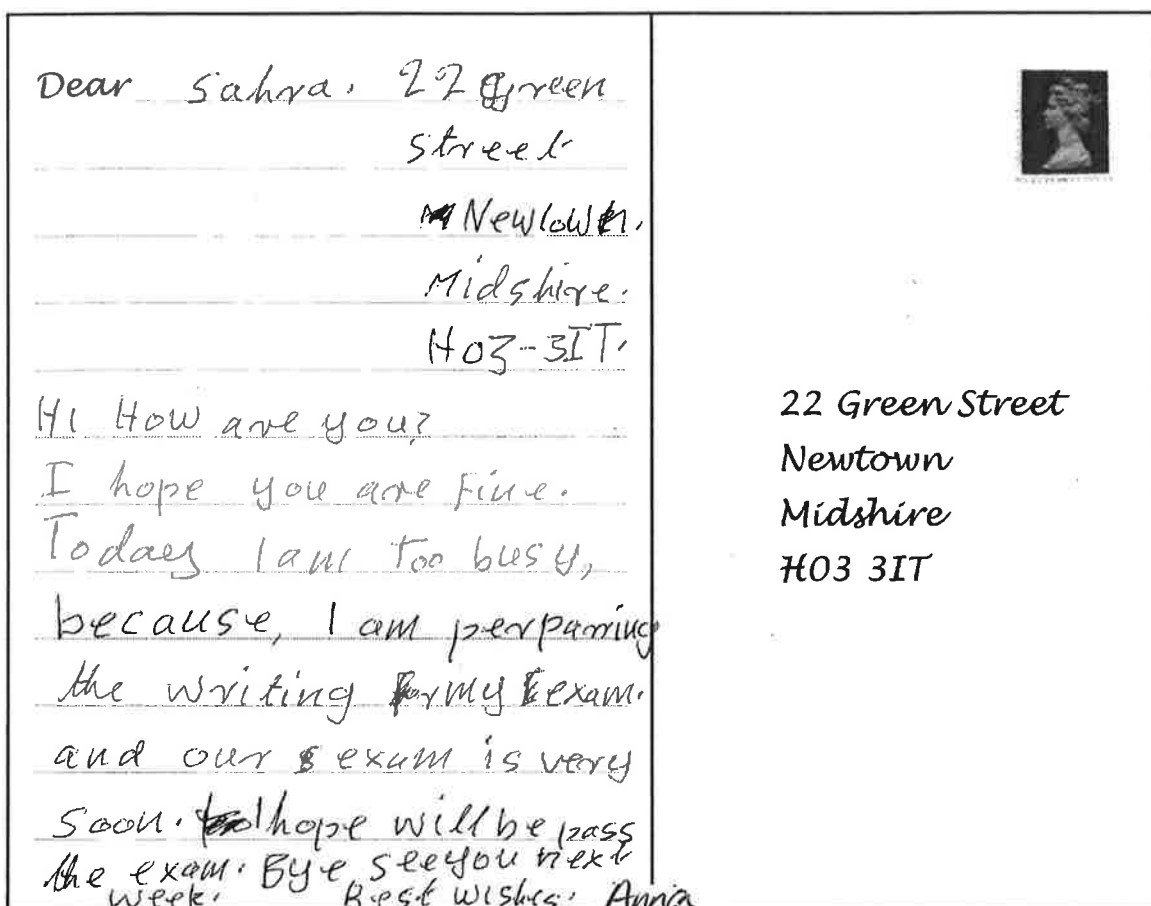 Dear Sahra. 22 green
street
Newtown.
Midshire.
H03-3IT.
Hi How are you?
I hope you are Fine.
Today I am too busy,
because, I am perparring
the writing for my exam.
and our exam is very
soon. I hope will be pass
the exam. Bye see you next
week. Best wishes. Anna
22 Green Street
Newtown
Midshire
H03 3IT